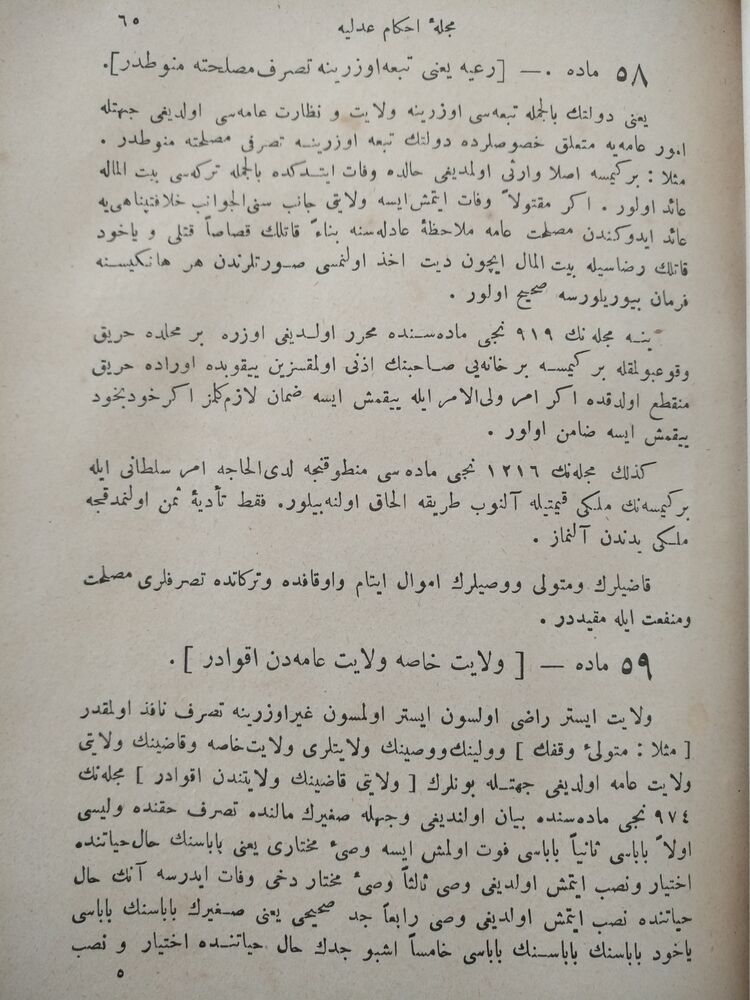 ٦٥
مجلهٔ احكام عدليه
٥٨ ماده .— [رعيه يعنى تبعه اوزرينه تصرف مصلحته منوطدر].
يعنى دولتك بالجمله تبعه‌سى اوزرينه ولايت و نظارت عامه‌سى اولديغى جهتله
امور عامه‌يه متعلق خصوصلرده دولتك تبعه اوزرينه تصرفى مصلحته منوطدر .
مثلا : بركيمسه اصلا وارثى اولمديغى حالده وفات ايتدكده بالجمله تركه‌سى بيت الماله
عائد اولور . اكر مقتولاً وفات ايتمش ايسه ولايتى جانب سنى‌الجوانب خلافتپناهى‌يه
عائد ايدوكندن مصلحت عامه ملاحظهٔ عادله‌سنه بناءً قاتلك قصاصاً قتلى و ياخود
قاتلك رضاسيله بيت المال ايچون ديت اخذ اولنمسى صورتلرندن هر هانكيسنه
فرمان بيوريلورسه صحيح اولور .
ينه مجله نك ٩١٩ نجى ماده‌سنده محرر اولديغى اوزره بر محلده حريق
وقوعبولمقله بر كيمسه بر خانه‌يى صاحبنك اذنى اولمقسزين ييقوبده اوراده حريق
منقطع اولدقده اكر امر ولى‌الامر ايله ييقمش ايسه ضمان لازم‌كلمز اكر خودبخود
ييقمش ايسه ضامن اولور .
كذلك مجله‌نك ١٢١٦ نجى ماده سى منطوقنجه لدى‌الحاجه امر سلطانى ايله
بركيمسه‌نك ملكى قيمتيله آلنوب طريقه الحاق اولنه‌بيلور. فقط تأديهٔ ثمن اولنمدقجه
ملكى يدندن آلنماز .
قاضيلرك ومتولى ووصيلرك اموال ايتام واوقافده وتركاتده تصرفلرى مصلحت
ومنفعت ايله مقيددر .
٥٩ ماده — [ ولايت خاصه ولايت عامه‌دن اقوادر ].
ولايت ايستر راضى اولسون ايستر اولمسون غير اوزرينه تصرف نافذ اولمقدر
[ مثلا : متولىٔ وقفك ] وولينك‌ووصينك ولايتلرى ولايت‌خاصه وقاضينك ولايتى
ولايت عامه اولديغى جهتله بونلرك [ ولايتى قاضينك ولايتندن اقوادر ] مجله‌نك
٩٧٤ نجى ماده‌سنده بيان اولنديغى وجهله صغيرك مالنده تصرف حقنده وليسى
اولاً باباسى ثانياً باباسى فوت اولمش ايسه وصىٔ مختارى يعنى باباسنك حال‌حياتنده
اختيار ونصب ايتمش اولديغى وصى ثالثاً وصىٔ مختار دخى وفات ايدرسه آنك حال
حياتنده نصب ايتمش اولديغى وصى رابعاً جد صحيحى يعنى صغيرك باباسنك باباسى
ياخود باباسنك باباسنك باباسى خامساً اشبو جدك حال حياتنده اختيار و نصب
٥